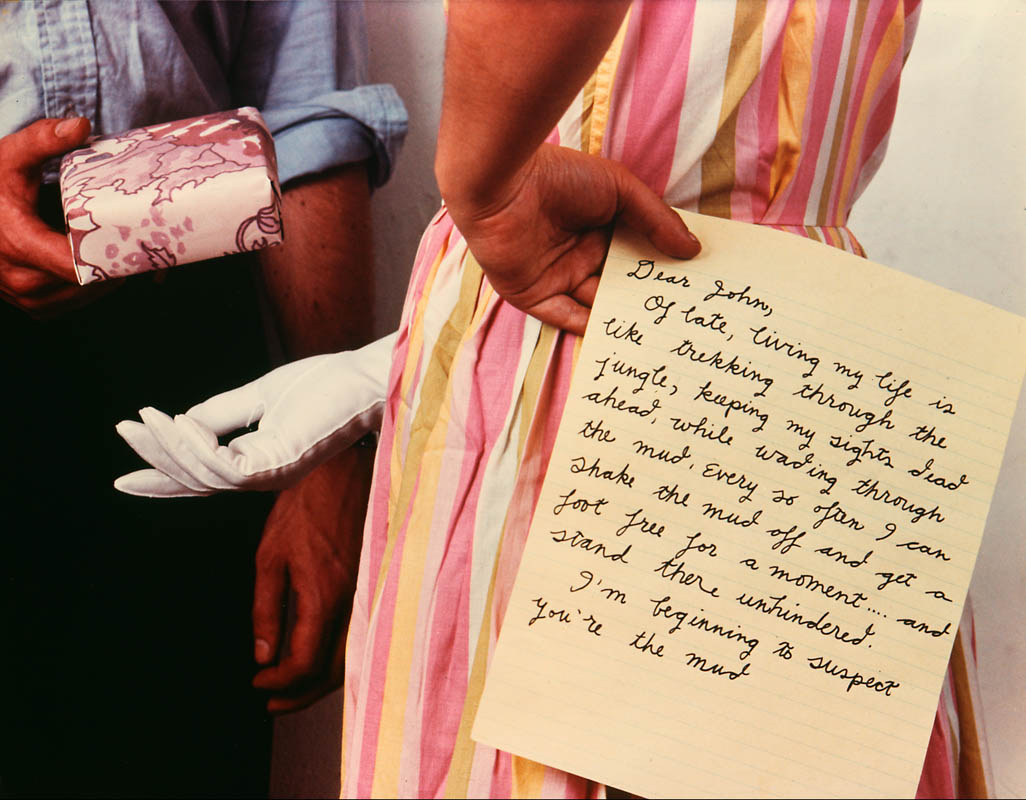 Dear John,
Of late, living my life is
like trekking through the
jungle, keeping my sights dead
ahead, while wading through
the mud. Every so often I can
shake the mud off and get a
foot free for a moment.... and
stand there unhindered.
I'm beginning to suspect
you're the mud